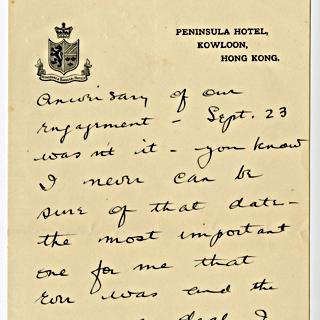 PENINSULA HOTEL,
KOWLOON,
HONG KONG.
Anniversary of our
engagement - Sept. 23
wasn't it - you know
I never can be
sure of that date -
the most important
one for me that
ever was and the
deal I